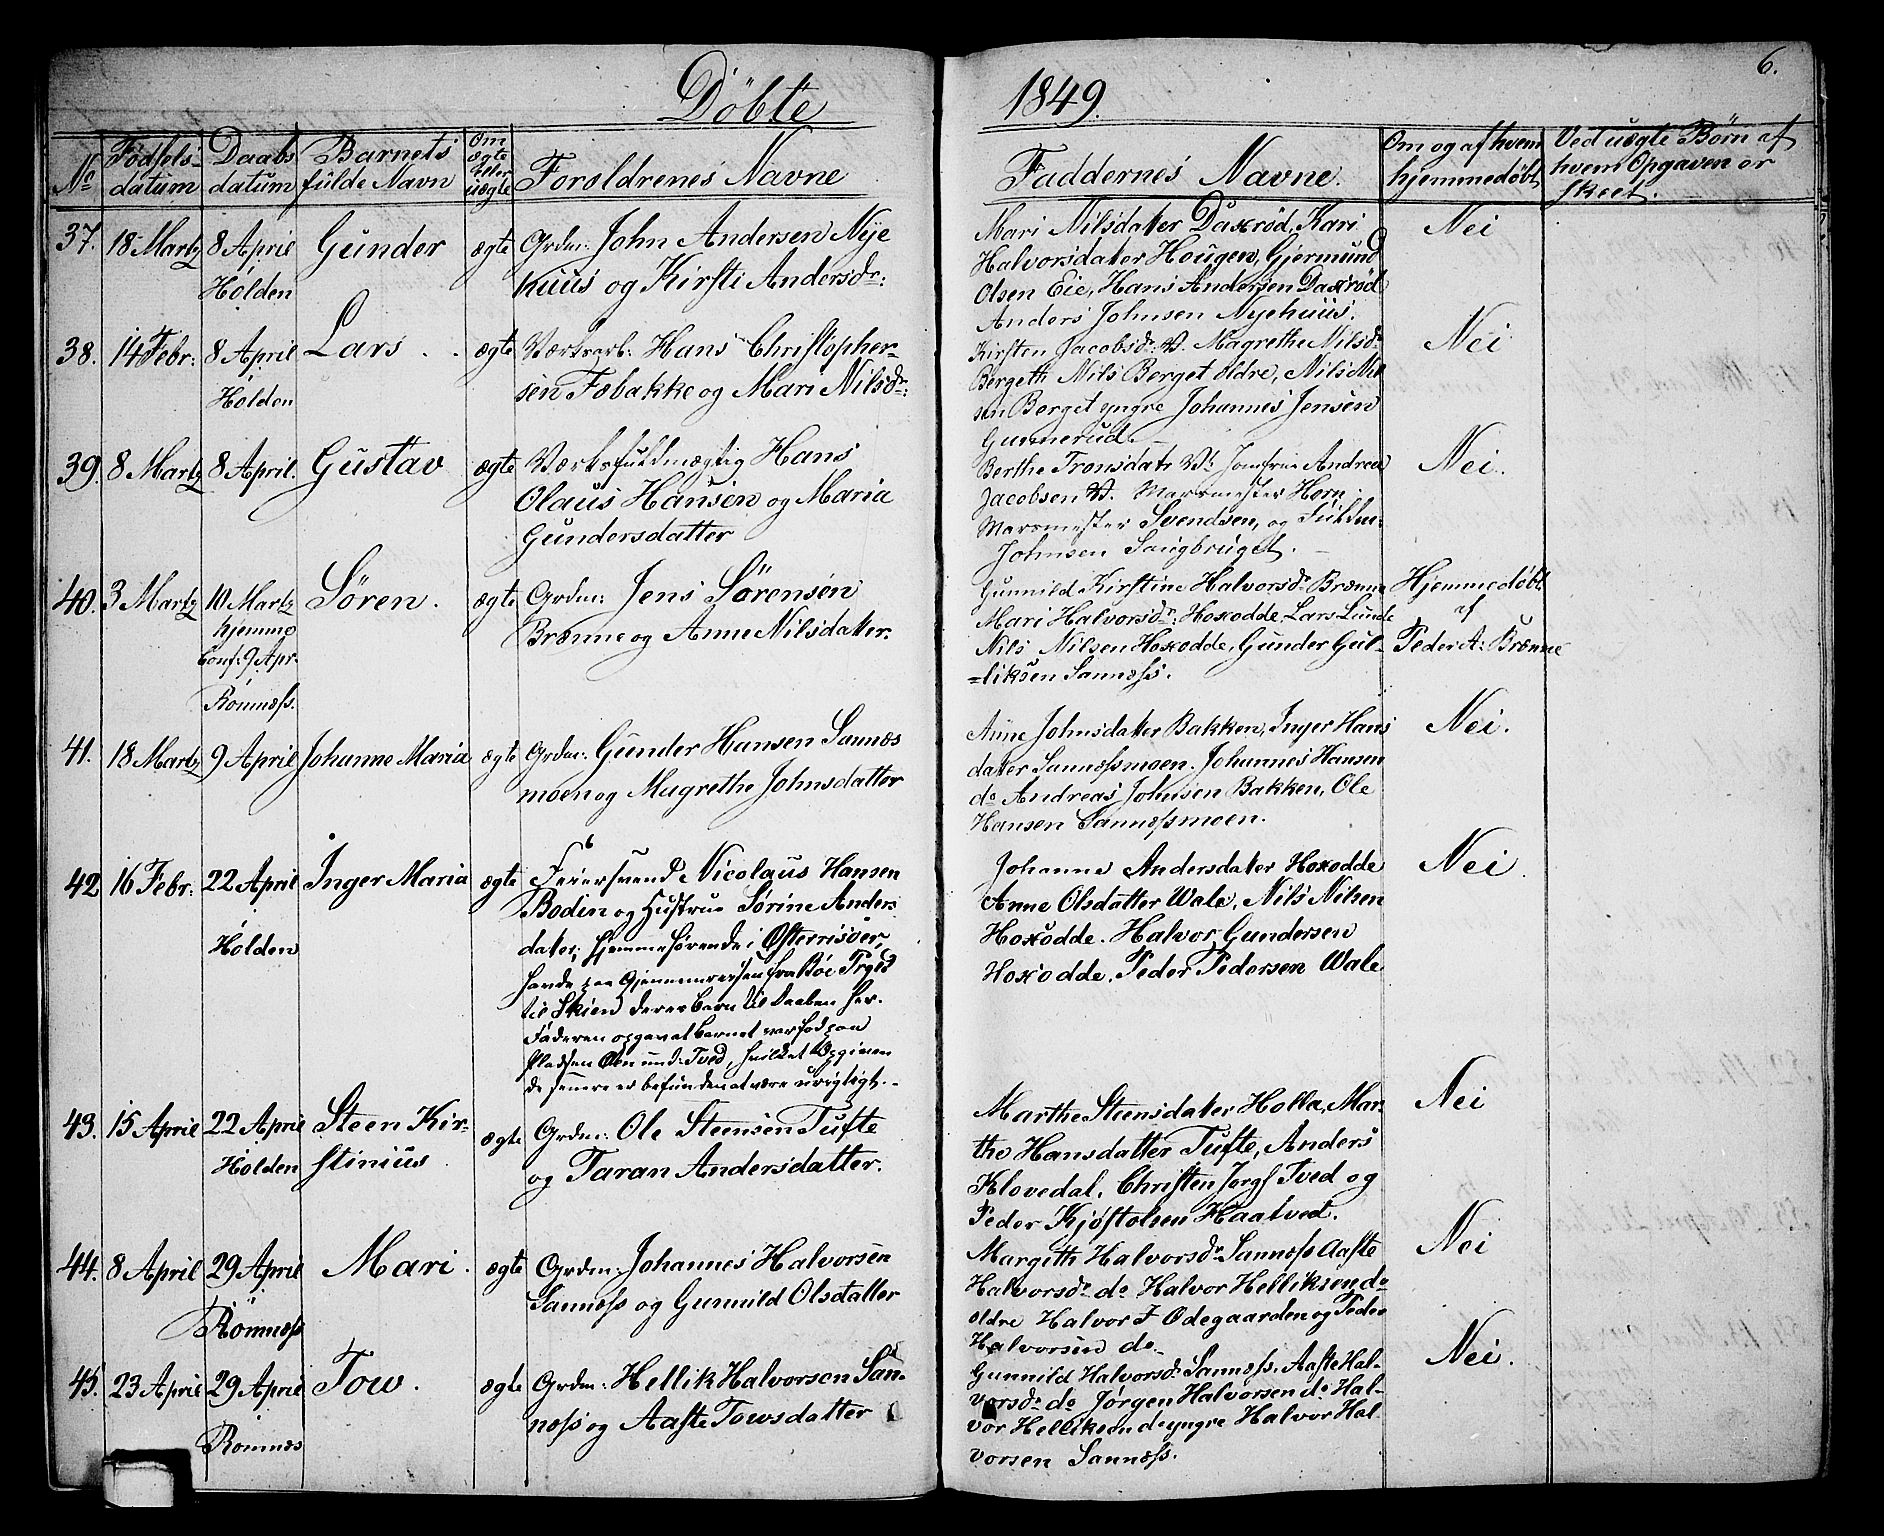 Döbte 1849.
6.
No
Födsels-
datum
Daabs
datum
Barnets
fulde Navn
Om
ægte
eller
uægte
Forældrenes Navne
Faddernes Navne.
Om og af hvem
hjemmedøbt
Ved uægte Børn af
hvem Opgaven er
skeet.
37. 18 Martz 8 April Gunder ægte Grdm: John Andersen Nye
Holden
huus og Kirsti Andersdr:
Mari Nilsdater Daxröd, Kari
Halvorsdater Hougen, Gjermund
Olsen Eie, Hans Andersen Daxröd
Anders Johnsen Nyehuus.
Nei
38. 14 Febr: 8 April Lars. ægte Værksarb: Hans Christopher-
Holden
sen Fæbakke og Mari Nilsdr:
Kirsten Jacobsdr: V. Magrethe Nilsdr
Bergeth Nils Berget ældre, Nils Nil
sen Berget yngre Johannes Jensen
Gunnerud.
Nei
39. 8 Martz 8 April. Gustav ægte Værksfuldmægtig Hans
Olaus Hansen og Maria
Gundersdatter
Berthe Tronsdatr V. Jomfrue Andrea
Jacobsen V. Marsmester Horn
Marsmester Svendsen, og Fuldm:
Johnsen Saugbruget.
Nei.
40. 3 Martz 10 Martz Sören. ægte Grdm: Jens Sörensen
hjemme
Conf: 9 Apr.
Römnæss.
Brænne og Anne Nilsdater.
Gunnild Kirstine Halvorsdr Brænne
Mari Halvorsdr: Hoxodde, Lars Lunde
Nils Nilsen Hoxodde, Gunder Gul-
=liksen Sannæss.
Hjemmedöbt
af
Peder A: Brænne
41. 18 Martz 9 April Johanne Maria ægte Grdm: Gunder Hansen Sannæs
moen og Magrethe Johnsdatter
Anne Johnsdater Bakken, Inger Hans
dater Sannæssmoen. Johannes Hansen
do Andreas Johnsen Bakken, Ole
Hansen Sannæssmoen.
Nei.
42 16 Febr: 22 April Inger Maria ægte Feiersvend Nicolaus Hansen
Holden
Boden og Hustrue Sörine Anders
dater, hjemmehörende i Østerrisöer,
havde paa Gjennemreisen fra Böe Prgld
til Skien deres Barn til Daaben her.
Faderen opgav at barnet var fød paa
Pladsen Øen und: Tved, hvilket Opgiven
de senere er befunden at være urigtigt.
Johanne Andersdater Hoxodde
Anne Olsdatter Wale, Nils Nilsen
Hoxodde. Halvor Gundersen
Hoxodde, Peder Pedersen Wale
Nei.
43. 15 April 22 April Steen Kir-
Holden
stinius
ægte Grdm: Ole Steensen Tufte
og Taran Andersdatter.
Marthe Steensdater Holla, Mar-
the Hansdatter Tufte, Anders
Klovedal, Christen Jørgs Tved og
Peder Kjøstolsen Haatvedt.
Nei
44. 8 April 29 April Mari. ægte Grdm: Johannes Halvorsen
Römnæss
Sannæss og Gunnild Olsdatter
Margith Halvorsdr Sannæss Aaste
Halvorsdr do Halvor Helliksen do
ældre Halvor J Ødegaarden og Peder
Halvorsen do
Nei
45. 23 April 29 April Tow. ægte Grdm: Hellik Halvorsen San-
Römnæs
næss og Aaste Towsdatter
Gunnild Halvorsdr Sannæss. Aaste Hal-
vorsdr do Jørgen Halvorsen do Hal-
vor Helliksen do yngre Halvor Hal
vorsen Sannæss.
Nei.